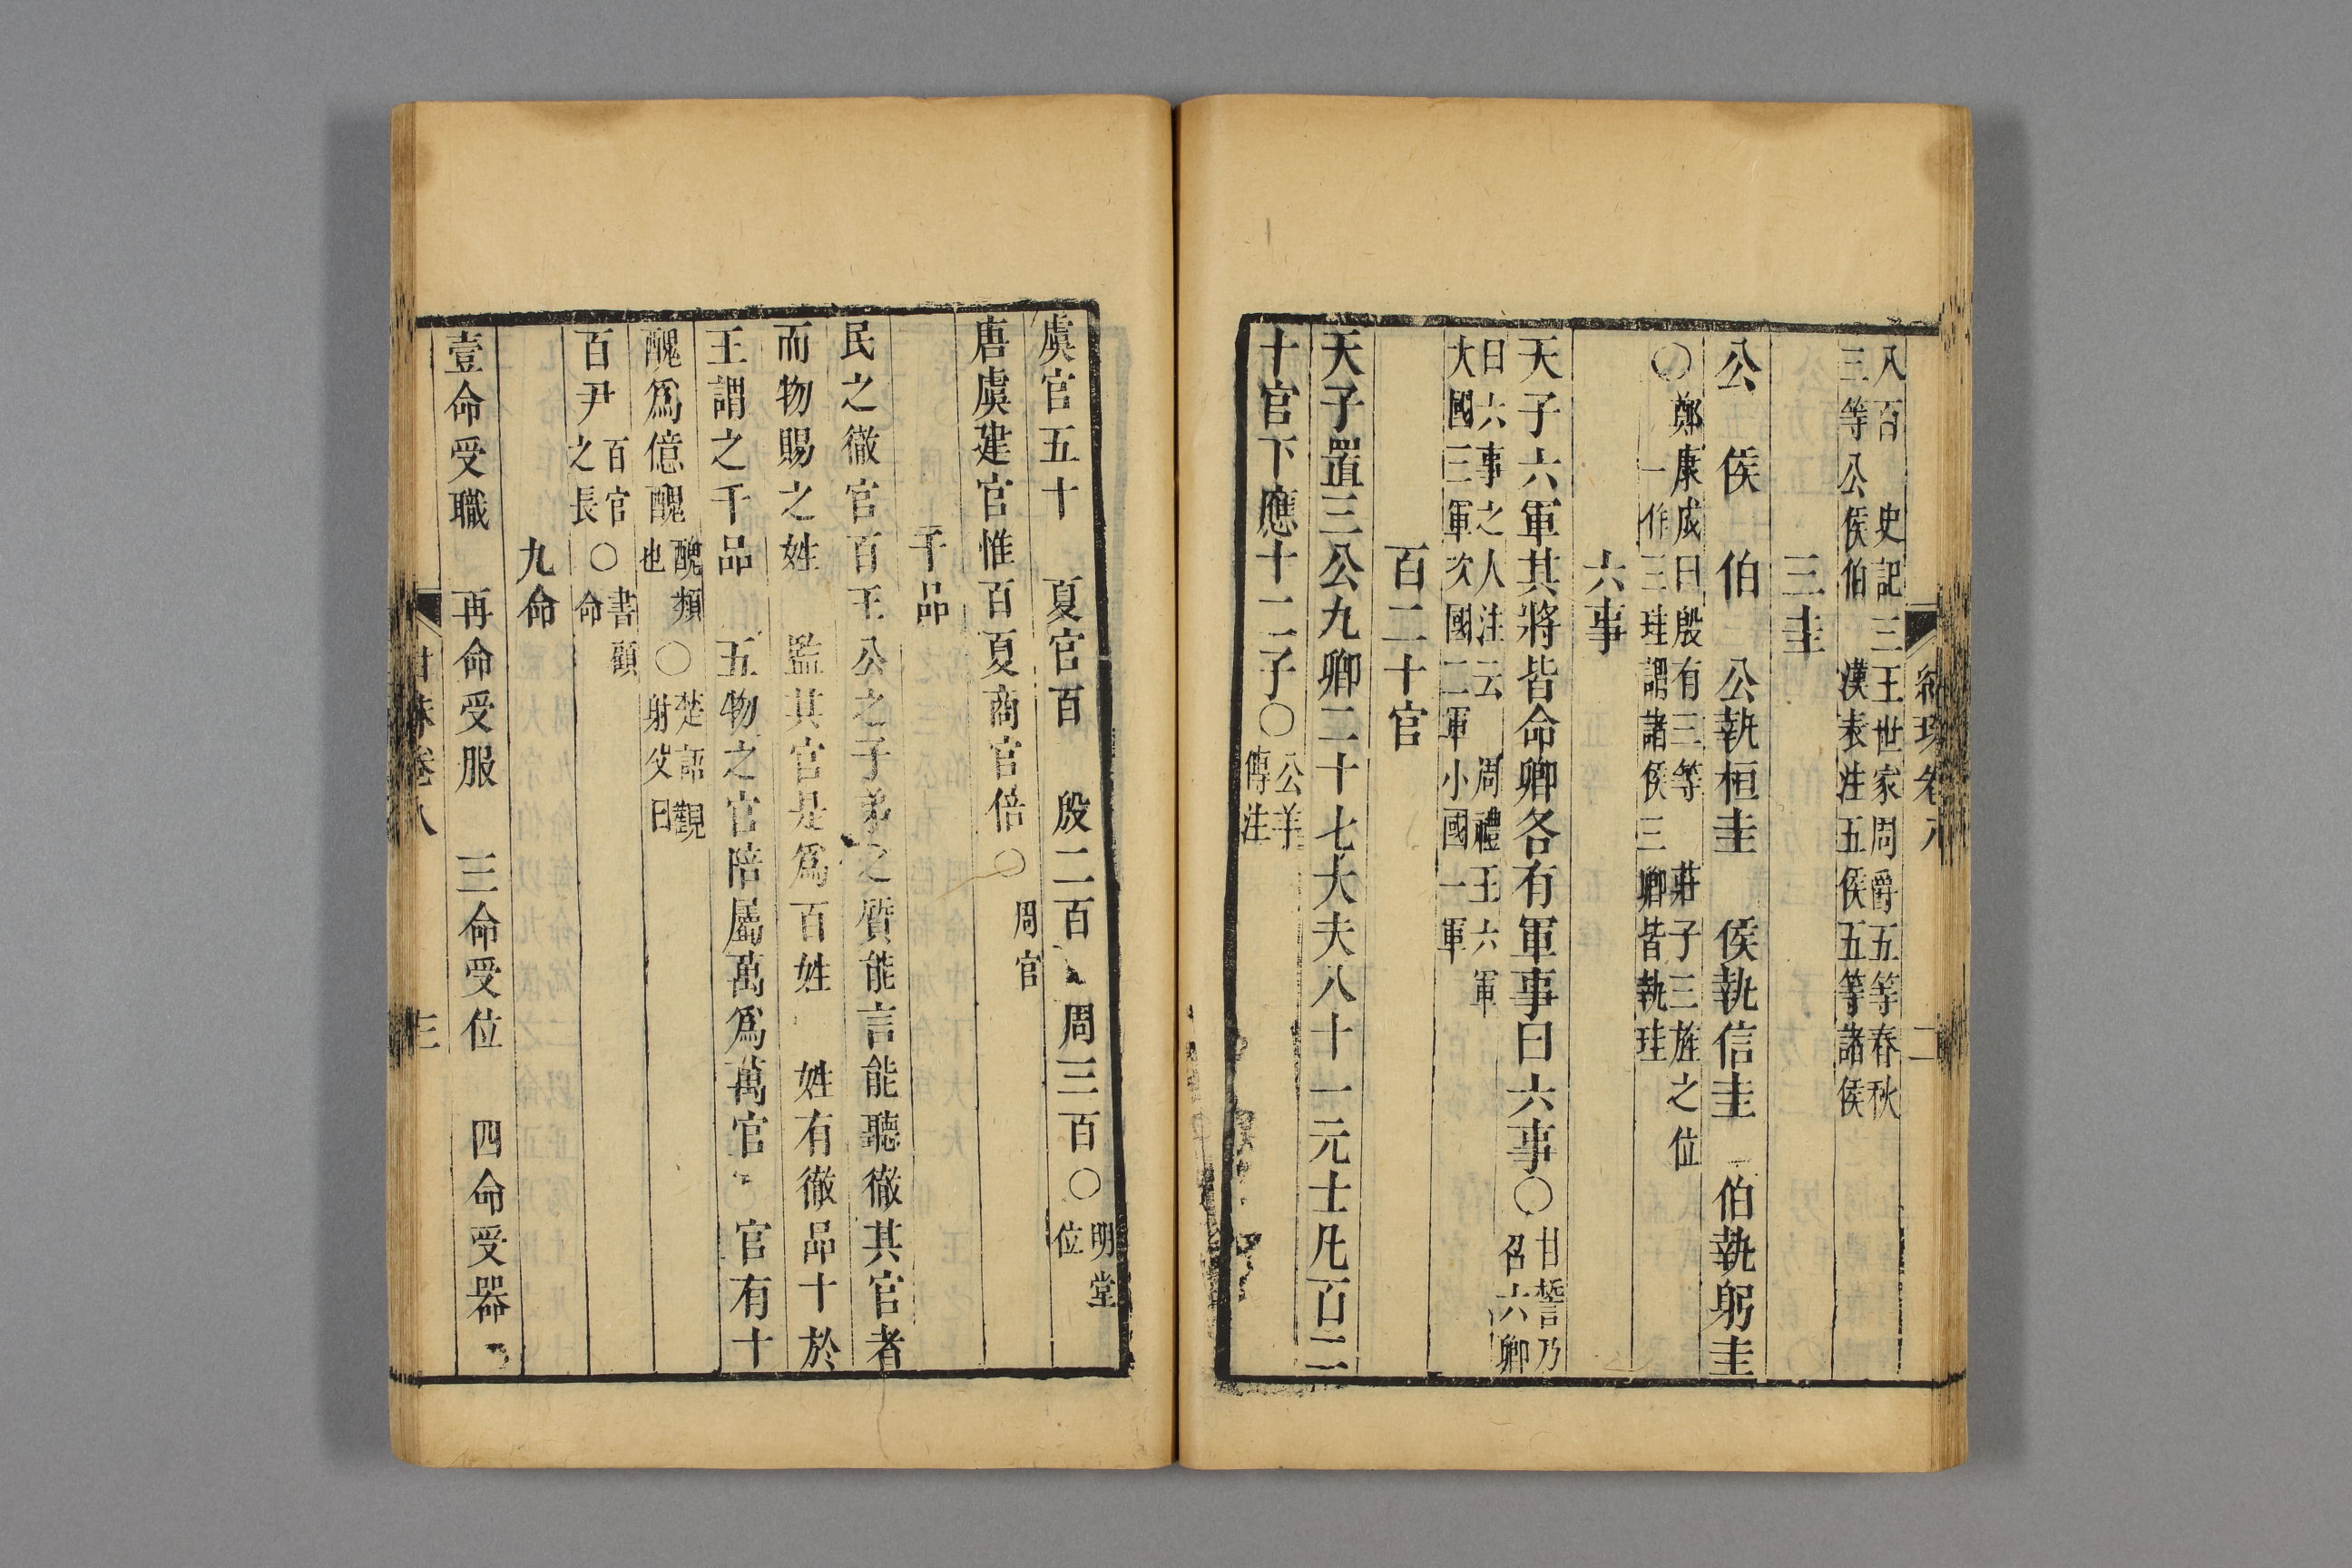 八百　史記三王世家周爵五等春秋
三等公侯伯　漢表注五侯五等諸侯
三圭
公　侯　伯　公執桓圭　侯執信圭　伯執躬圭
〇鄭康成曰殷有三等　莊子三旌之位
一作三珪謂諸侯三卿皆執珪
六事
天子六軍其將皆命卿各有軍事曰六事〇甘誓乃
召六卿
曰六事之人注云　周禮王六軍
大國三軍次國二軍小國一軍
百二十官
天子置三公九卿二十七大夫八十一元士凡百二
十官下應十二子〇公羊
傳注
虞官五十　夏官百　殷二百　周三百〇明堂
位
唐虞建官惟百夏商官倍〇周官
千品
民之徹官百王公之子弟之質能言能聽徹其官者
而物賜之姓　監其官是爲百姓　姓有徹品十於
王謂之千品　五物之官陪屬萬爲萬官　官有十
醜爲億醜醜類
也〇楚語觀
射父曰
百尹百官
之長〇書顧
命
九命
壹命受職　再命受服　三命受位　四命受器
卷八
三